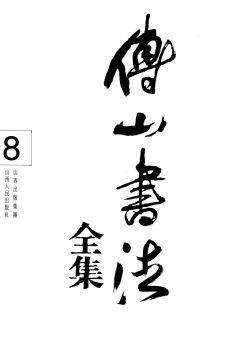 傅山書法
全集
8
山西出版集團
山西人民出版社